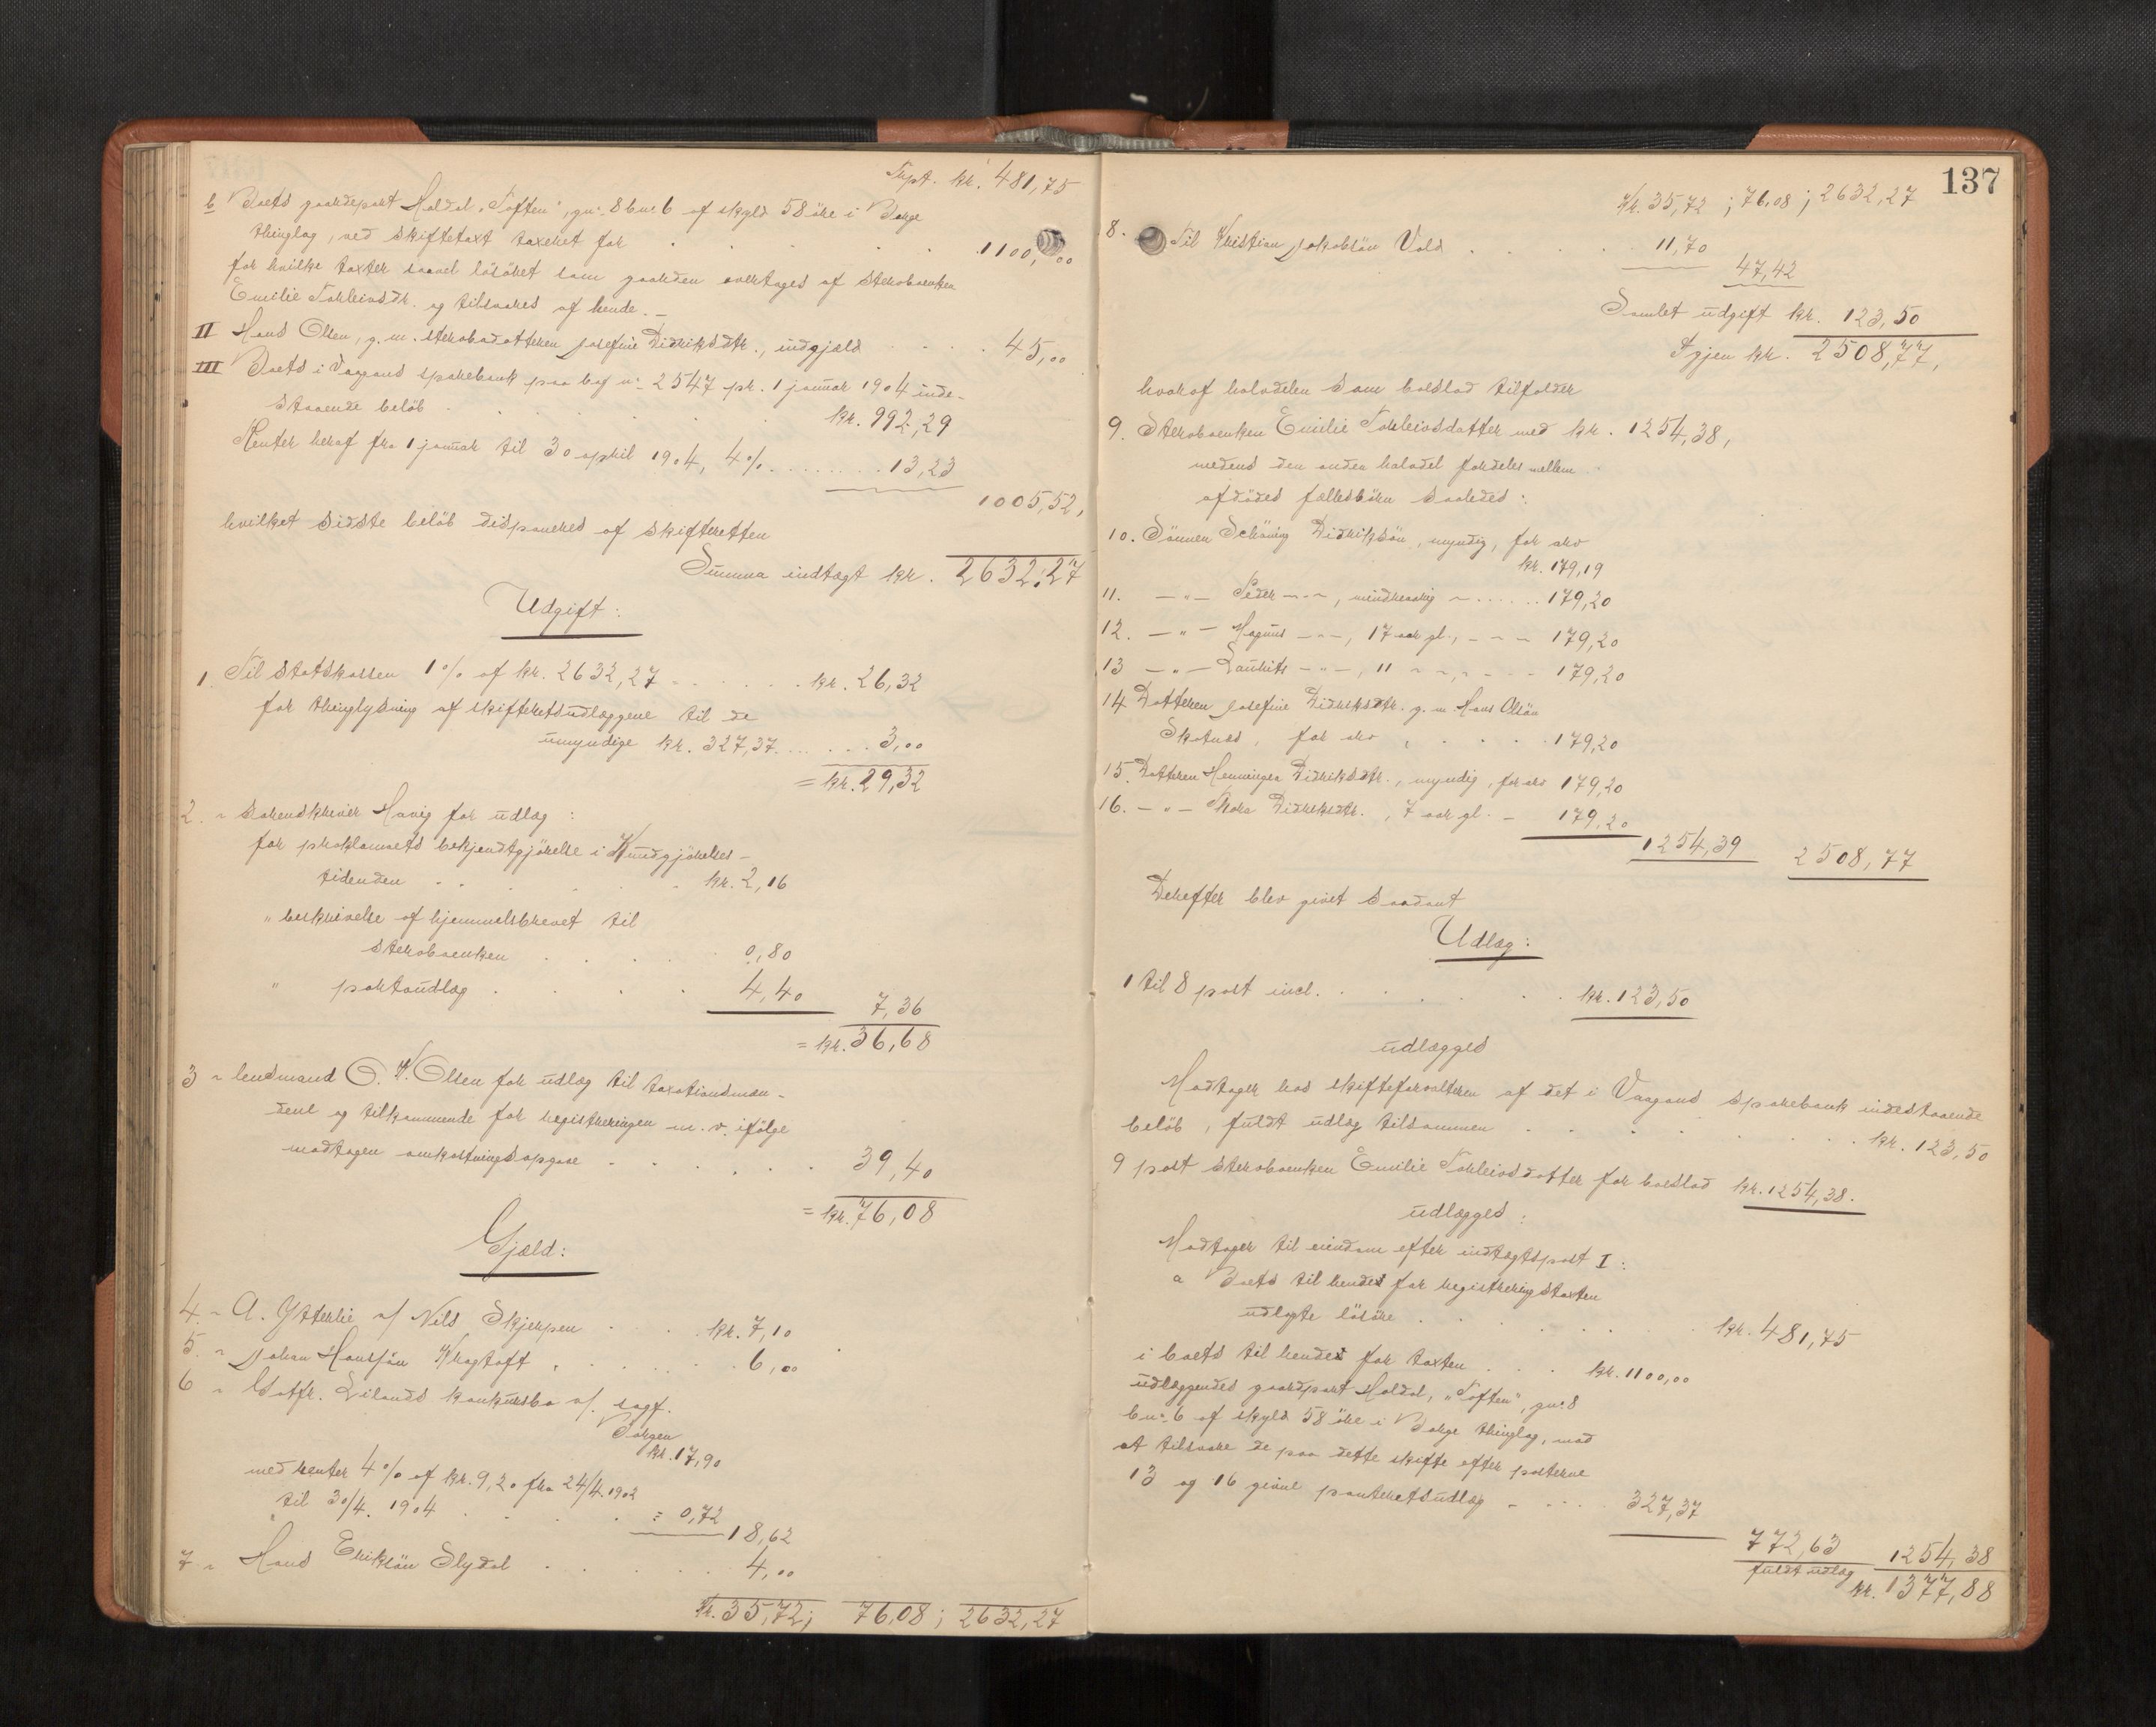 Trpt. kr. 481,75
b Boets gaardepart Haldal „Toften“, gn: 8 bn: 6 af skyld 58 øre i Borge
thinglag, ved skiftetaxt taxeret for . . . . 1100,00
for hvilke taxter saavel løsøret som gaarden overtages af sterboenken
Emilie Torleivsdtr. og tilsvares af hende. –
II Hans Olsen, g. m. sterbodatteren Josefine Didriksdtr., indgjæld . . . . 45,00
III Boets i Vaagans sparebank paa bog n: 2547 pr. 1 januar 1904 inde-
staaende beløb . . . . kr. 992,29
Renter heraf fra 1 januar til 30 april 1904, 4% . . . . 13,23
1005,52,
hvilket sidste beløb disponeres af skifteretten
Summa indtægt kr. 2632,27
Udgift:
1. Til statskassen 1% af kr. 2632,27 . . . . kr. 26,32
for thinglysning af skifteretsudlæggene til de
umyndige kr. 327,37 . . . . 3,00
= kr. 29,32
2. „ sorenskriver Havig for udlæg :
for proklamaets bekjendtgjørelse i Kundgjørelses-
tidenden . . . . kr. 2,16
„ beskrivelse af hjemmelsbrevet til
sterboenken . . . . 0,80
„ portoudlæg . . . . 4,40
7,36
= kr. 36,68
3 „ lensmand O. K. Olsen for udlæg til taxationsmæn-
dene og tilkommende for registreringen m. v. ifølge
modtagen omkostningsopgave . . . . 39,40
= kr. 76,08
Gjæld:
4. „ A. Ytterlie v/ Nils Skjerpen . . . kr. 7,10
5. „ Johan Hansøn Kragtoft . . . . 6,00
6 „ Gotfr. Eilands konkursbo v/. sagf.
Borgen
kr. 17,90
med renter 4% af kr. 9,20 fra 24/4. 1902
til 30/4. 1904 . . . . = 0,72
18,62
7 „ Hans Eriksøn Slydal . . . . 4,00
kr. 35,72; 76,08; 2632,27
137
kr. 35,72; 76,08; 2632,27
8. Til Kristian Jakobsøn Vold . . . . 11,70
47,42
Samlet udgift kr. 123,50
Igjen kr. 2508,77,
hvoraf halvdelen som boeslod tilfalder
9. Sterboenken Emilie Torleivsdatter med kr. 1254,38,
medens den anden halvdel fordeles mellem
afdødes fællesbørn saaledes :
10. Sønnen Schøning Didriksøn, myndig, for arv
kr. 179,19
11. – „ – Peder – „ –, mindreaarig – . . . . 179,20
12. – „ – Magnus – „ –, 17 aar gl., – „ – 179,20
13 – „ – Laurits – „ –, 11 – „ –, – . . 179,20
14 Datteren Josefine Didriksdtr. g. m. Hans Olsøn
Skotnes, for arv . . . . 179,20
15. Datteren Henningea Didriksdtr., myndig, for arv 179,20
16. – „ – Thora Didriksdtr., 7 aar gl. – 179,20
1254,39 2508,77
Derefter blev givet saadant
Udlæg:
1 til 8 post incl. . . . . kr. 123,50
udlægges
Modtager hos skifteforvalteren af det i Vaagans sparebank indestaaende
beløb, fuldt udlæg tilsammen . . . . kr. 123,50
9 post sterboenken Emilie Torleivsdatter for boeslod kr. 1254,38.
udlægges :
Modtager til eiendom efter indtægtspost I :
a Boets til hendes for registreringstaxten
udlagte løsøre . . . . kr. 481,75
i boets til hendes for taxten . . . kr. 1100,00
udlæggendes gaardpart Haldal, „Toften“, gn: 8
bn: 6 af skyld 58 øre i Borge thinglag, mod
at tilsvare de paa dette skifte efter posterne
13 og 16 givne panteretsudlæg . . . . 327,37
772,63 1254,38
fuldt udlæg kr. 1377,88